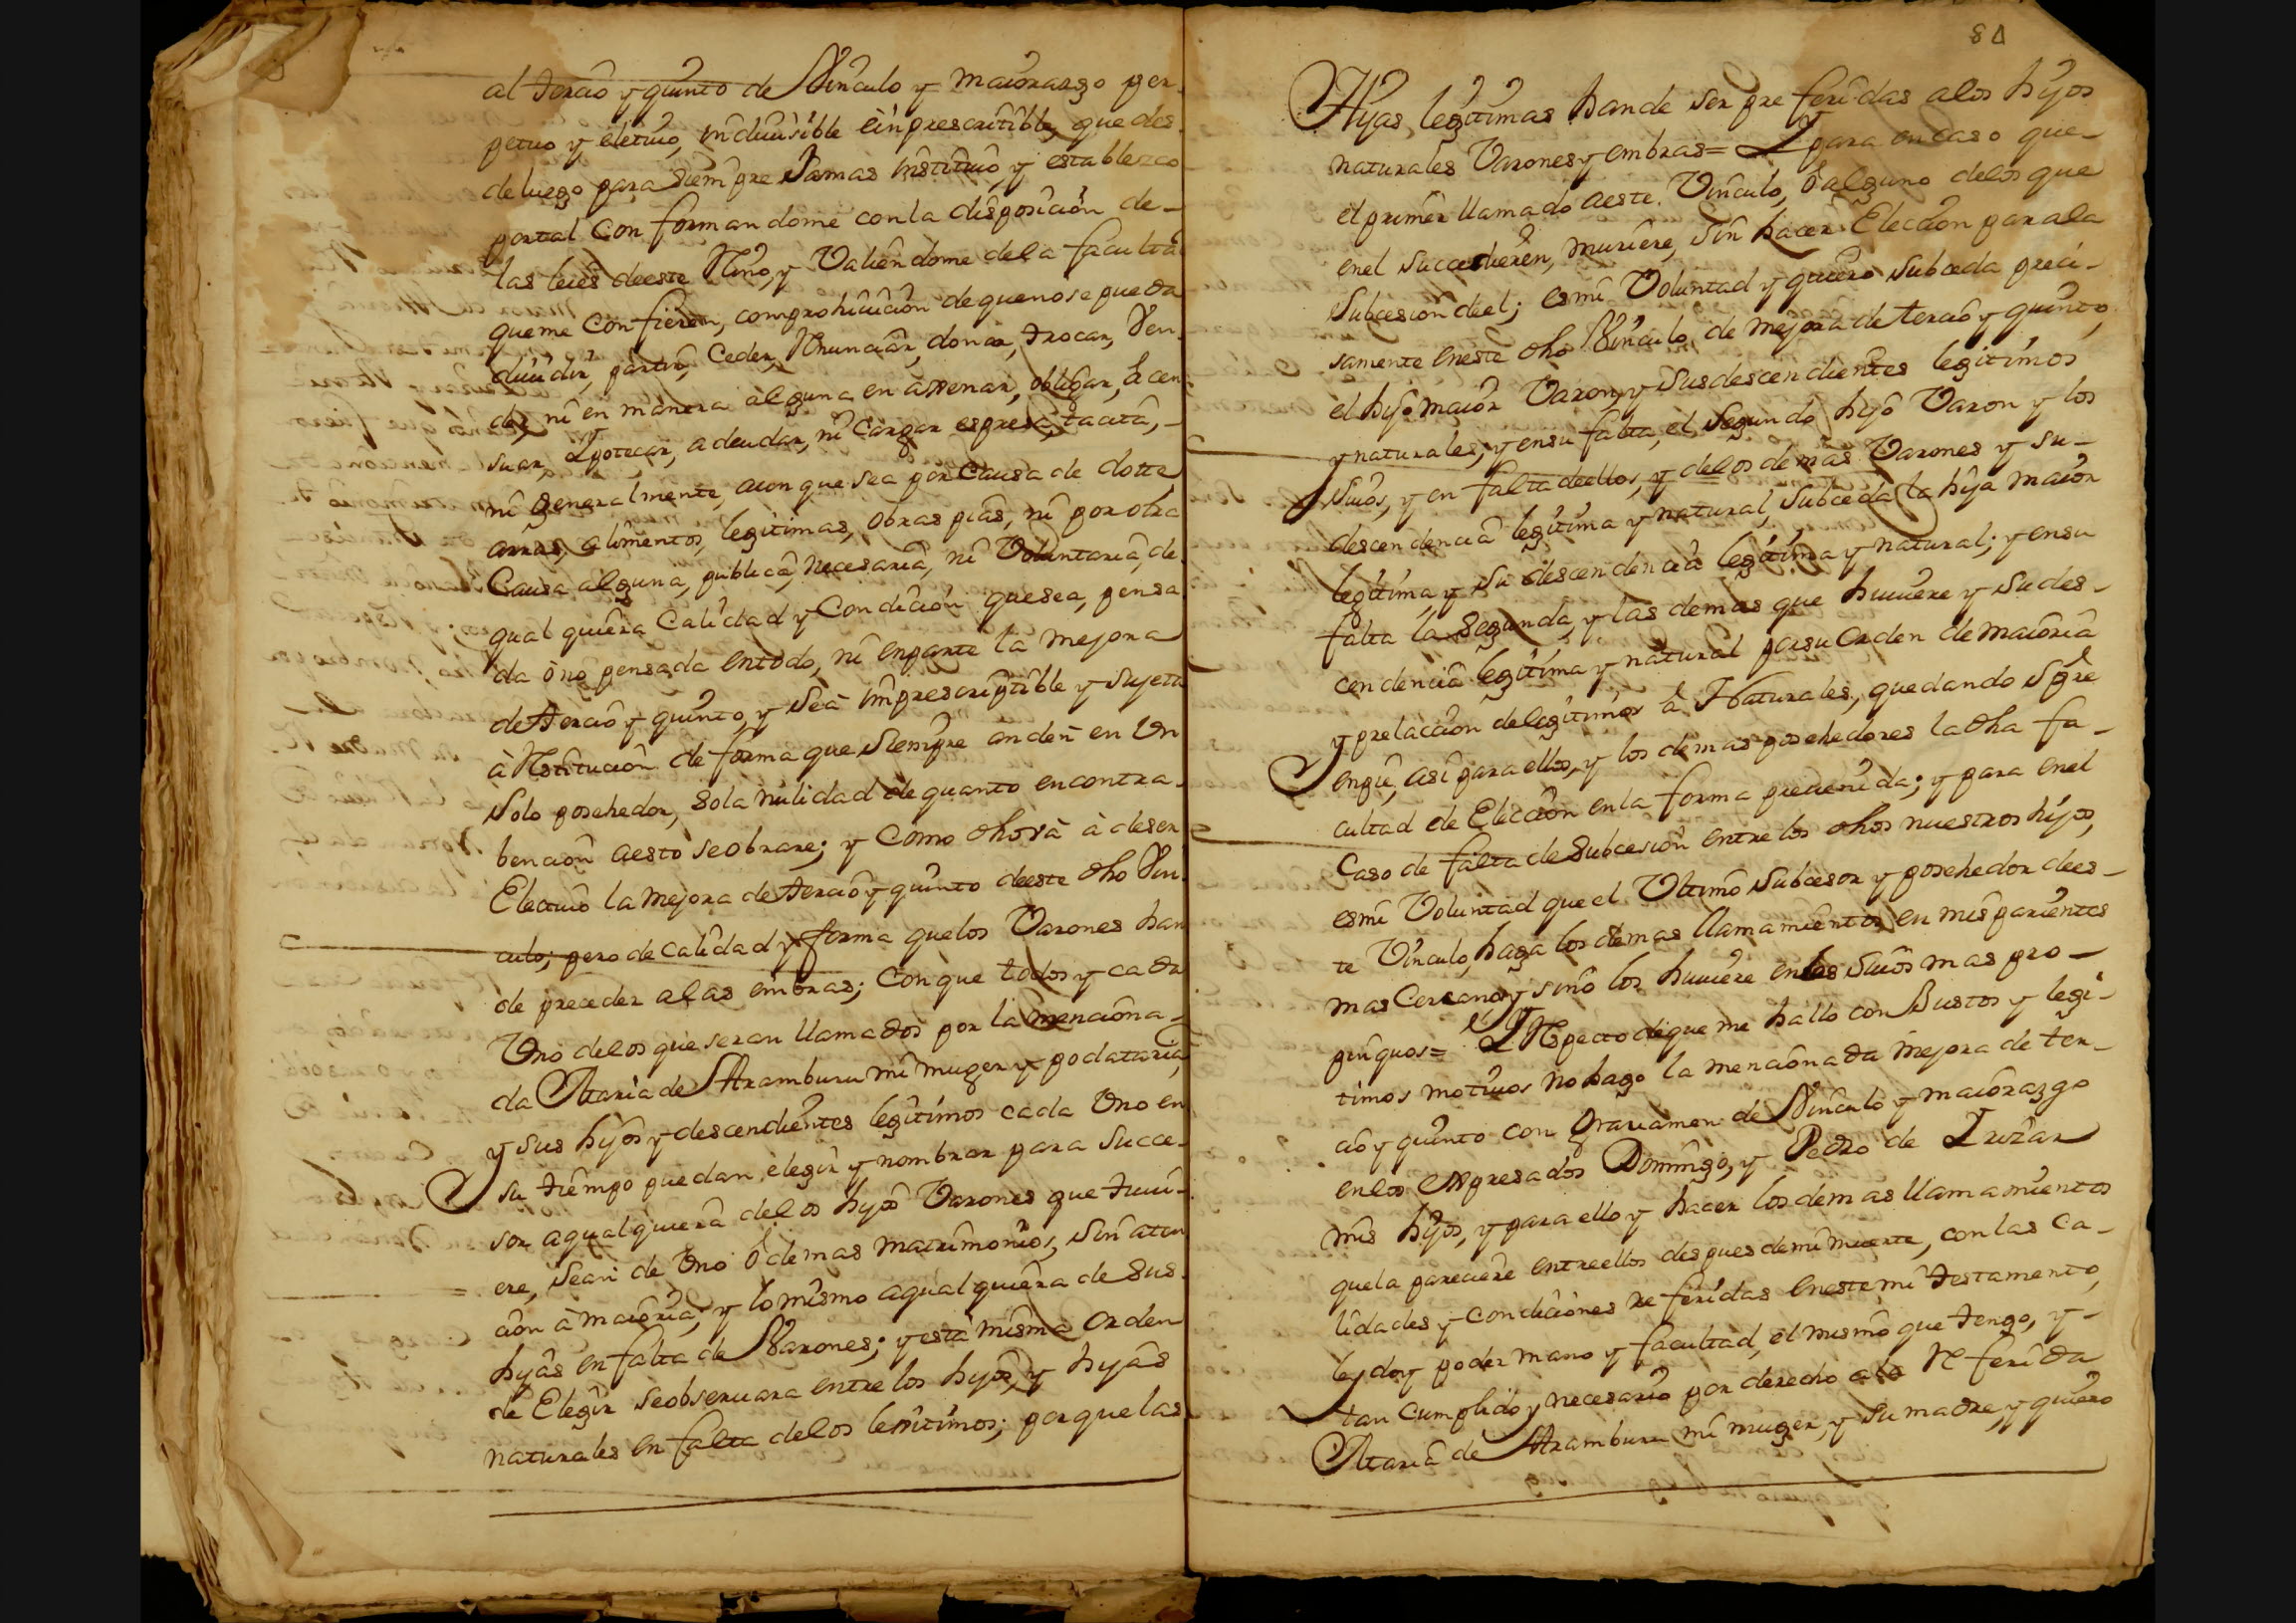 al tercio y quinto de Vinculo y maiorazgo per-
petuo y eletivo, indiuisible e inprescritible, que des-
de luego para siempre Jamas instituio, y establezco
por tal conformandome con la disposicion de-
las leies de este Reino, y Valiendome de la facultad
que me confieren, con prohiuicion de que no se pueda
diuidir, partir, Ceder, Renunciar, donar, trocar, Ven-
der, ni en manera alguna en agenar, obligar, àcen
suar, Ypotecar, adeudar, ni cargar espresa, tacita,-
ni generalmente, aunque sea por Causa de dotte,
arras, alimentos, legitimas, obras pias, ni por otra
Causa alguna, publica, necesaria, ni Voluntaria, de
qual quiera Calidad y Condicion que sea, pensa
da ò no pensada en todo, ni en parte la mejora
de tercio y quinto, y sea imprescriptible y sujeta
à Restitucion de forma que siempre anden en Un
solo posehedor, so la nulidad de quanto en contra-
bencion a esto se obrare; y como dho va à de ser
Electiuo la mejora de tercio y quinto de este dho Vin-
culo; pero de calidad y forma que los Varones han
de preceder a las embras; con que todos y cada
Uno de los que seran llamados por la menciona-
da Maria de Aramburu mi muger y podataria,
y sus hijos y descendientes legitimos cada Uno en
su tiempo puedan elegir y nombrar para succe-
sor a qualquiera de los hijos Varones que tuui-
ere, sean de Uno ò demas matrimonios, sin aten
cion à maioria; y lo mismo a qualquiera de sus
hijas en falta de Varones; y esta misma orden
de Elegir se obseruara entre los hijos, y hijas
naturales en falta de los lexitimos; porque las
84
Hijas legitimas han de ser preferidas a los hijos
naturales Varones y embras= Y para en caso que-
el primer llamado a este Vinculo, ò alguno de los que
en el succedieren, muriere, sin hacer Eleccion para la
Subcesion de el; es mi Voluntad y quiero subceda preci-
samente en este dho Vinculo de mejora de tercio y quinto,
el hijo maior Varon y sus descendientes legitimos
y naturales; y en su falta, el segundo hijo Varon y los
suios, y en falta de ellos, y de los demas Varones y su-
descendencia legitima y natural, subceda la hija maior
legitima, y su descendencia legitima y natural; y en su
falta la segunda, y las demas que huuiere y su des-
cendencia legitima y natural por su orden de maioria
y prelacion de legitimos à Naturales, quedando Spre
en pie, asi para ellos, y los demas posehedores la dha fa-
cultad de Eleccion en la forma preuenida; y para en el
Caso de falta de subcesion entre los dhos nuestros hijos,
es mi Voluntad que el Ultimo subcesor y posehedor de es-
te Vinculo, haga los demas llamamientos en mis parientes
mas Cercanos y sino los huuiere en los suios mas pro-
pinquos= Y Respecto de que me hallo con Justos y legi-
timos motiuos no hago la mencionada mejora de ter-
cio y quinto con grauamen de Vinculo y maiorazgo
en los expresados Domingo, y Pedro de Yrizar
mis hijos, y para ello y hacer los demas llamamientos
que la pareciere entre ellos despues de mi muerte, con las ca-
lidades y condiciones referidas en este mi testamento,
le doy poder mano y facultad, el mismo que tengo, y-
tan cumplido y necesario por derecho a la Referida
Maria de Aramburu mi muger, y su madre, y quiero